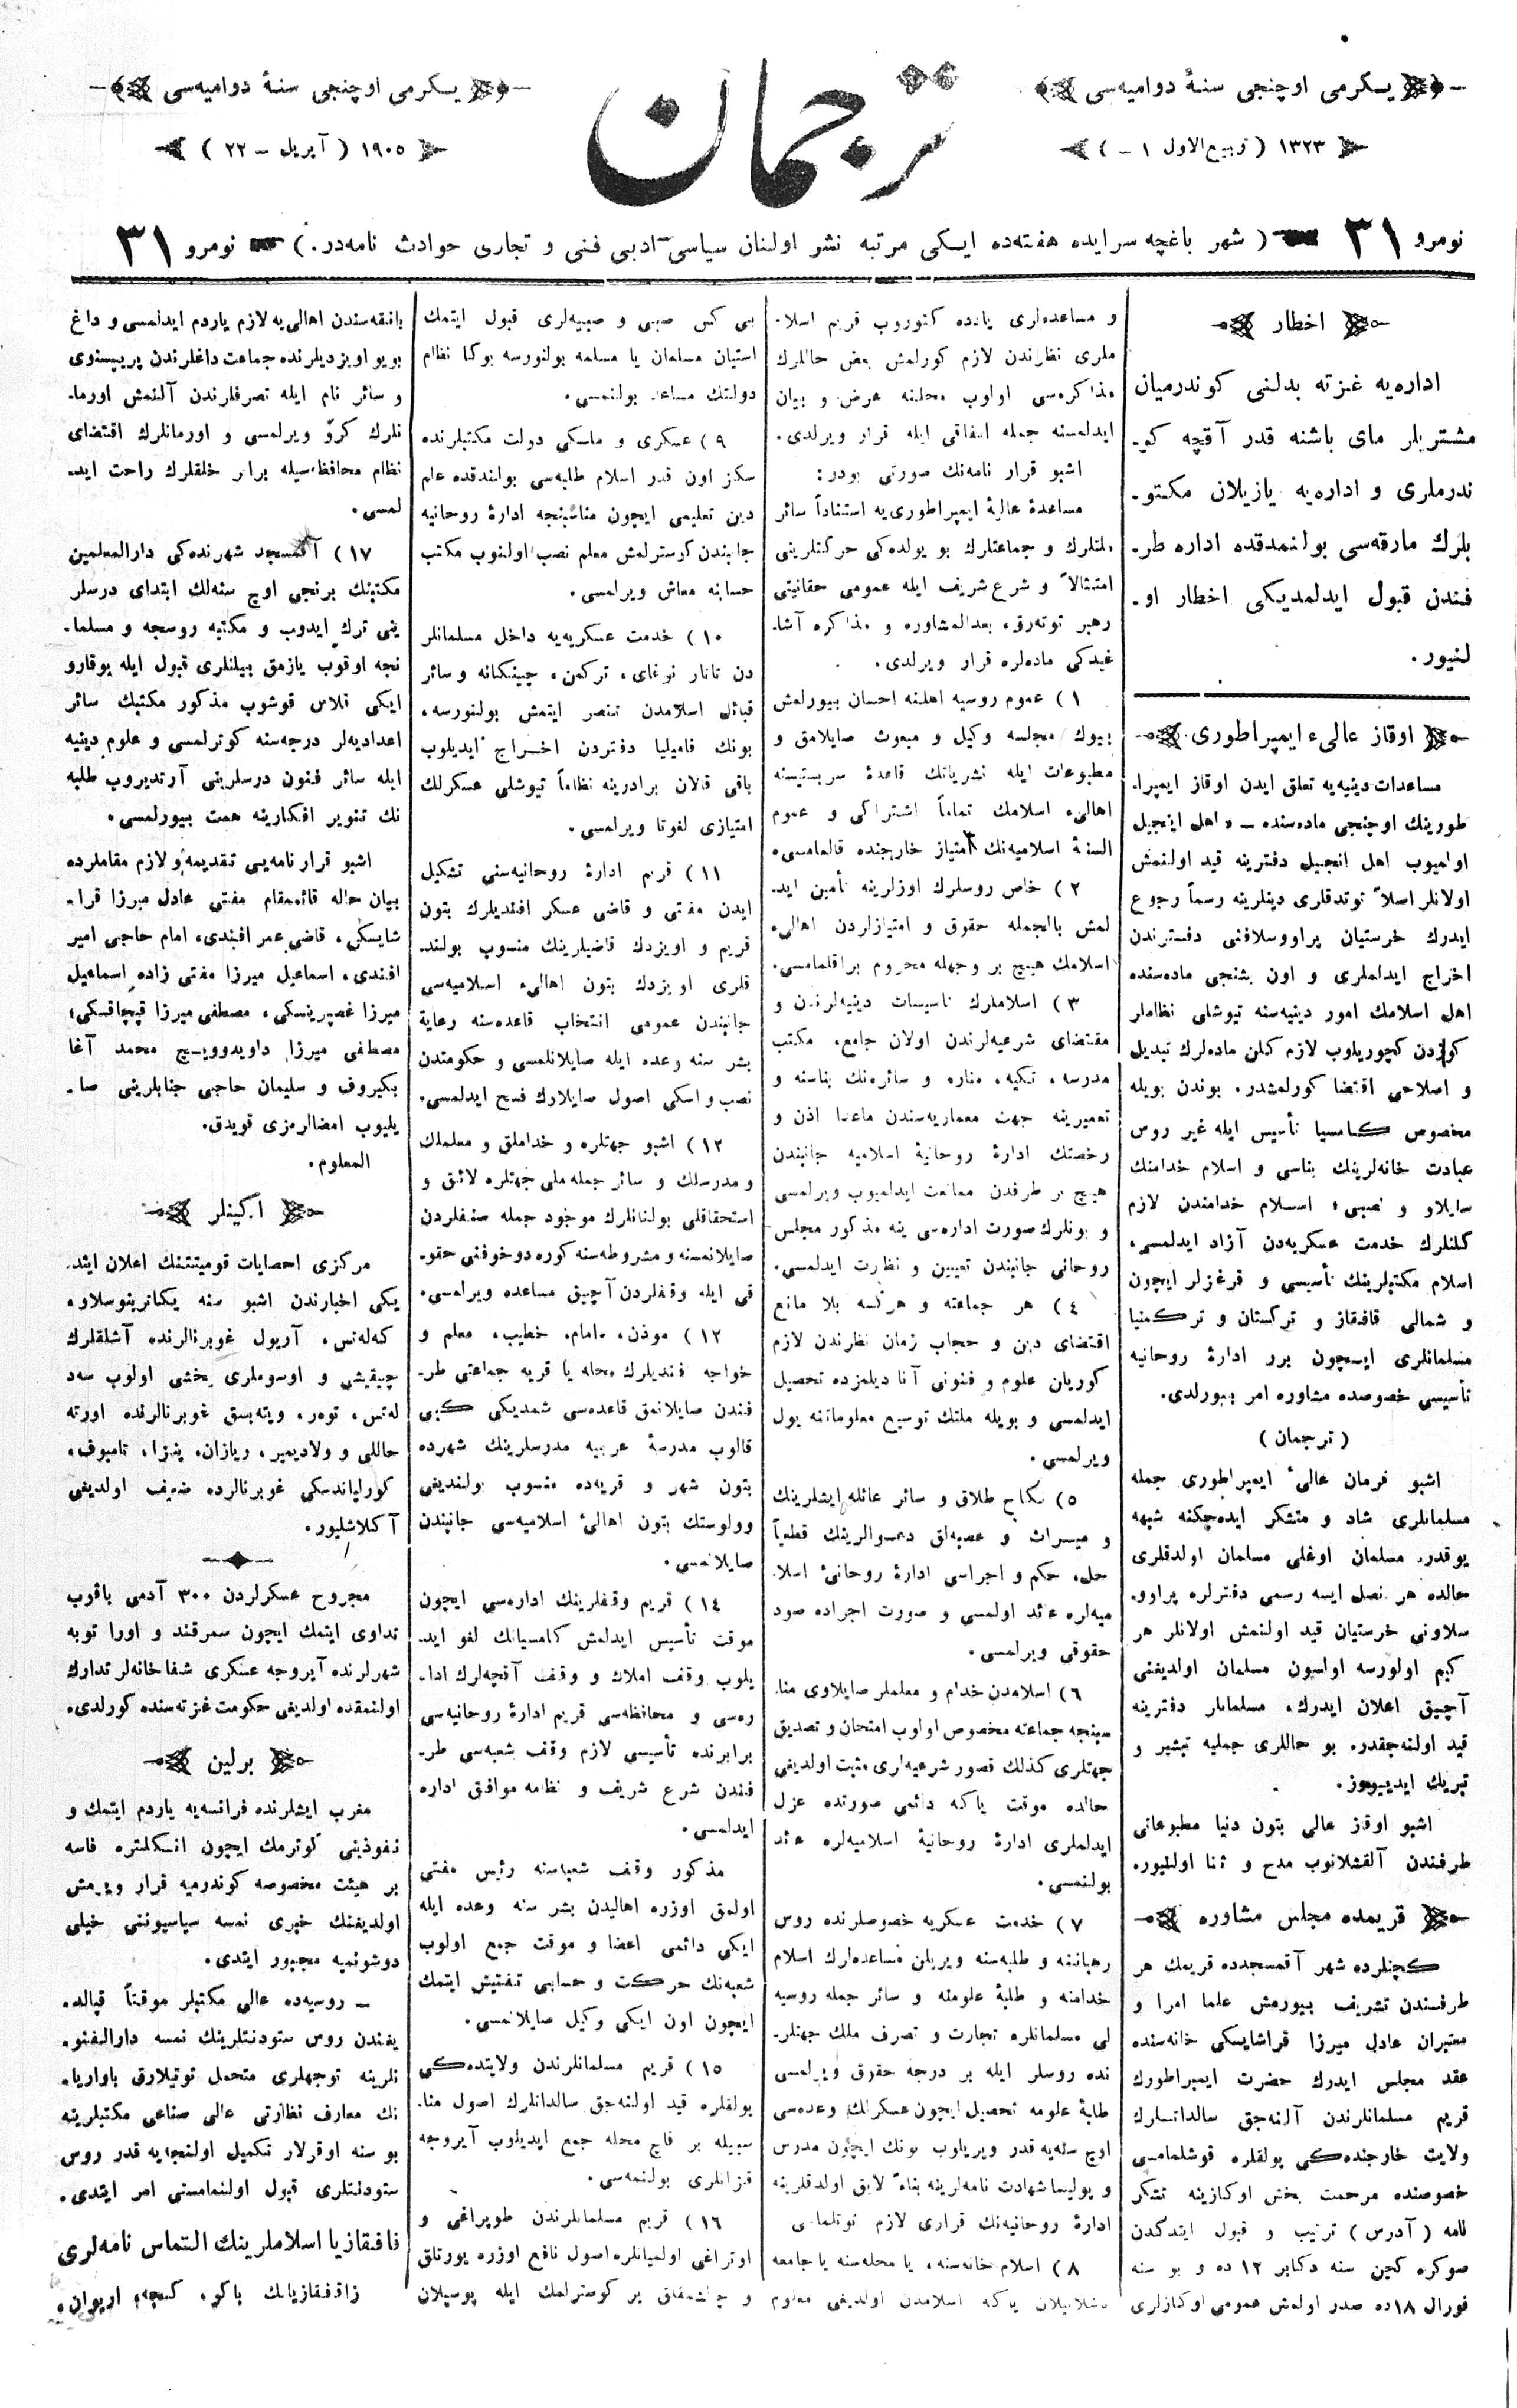 یـکرمی اوچنجی سنهٔ دوامیه‌سی
ترجمان
یـکرمی اوچنجی سنهٔ دوامیه‌سی
۱۳۲۳ ( ربیع‌الاول ۱ - )
۱۹۰۵ ( آپریل - ۲۲ )
نومرو ۳۱ ( شهر باغچه سرایده هفته‌ده ایـکی مرتبه نشر اولنان سیاسی ادبی فنی و تجاری حوادث نامه‌در . ) نومرو ۳۱
اخطار
اداره‌یه غزته بدلنی کوندرمیان
مشتریلر مای باشنه قدر آقچه کو-
ندرملری و اداره‌یه یازیلان مکتو-
بلرك مارقه‌سی بولنمدقده اداره طر-
فندن قبول ایدلمدیکی اخطار او-
لنیور .
اوقاز عالیء ایمپراطوری
مساعدات دینیه‌یه تعلق ایدن اوقاز ایمپرا-
طورینك اوچنجی ماده‌سنده - « اهل اینجیل
اولمیوب اهل انجیل دفترینه قید اولنمش
اولانلر اصلاً توتدقلری دینلرینه رسماً رجوع
ایدرك خرستیان پراووسلافنی دفـترندن
اخراج ایدلملری و اون بشنجی ماده‌سنده
اهل اسلامك امور دینیه‌سنه تیوشلی نظاملر
کوزدن کچوریلوب لازم کلن ماده‌لرك تبدیل
و اصلاحی اقتضا کورلمشدر . بوندن بویله
مخصوص کـامسیا تأسیس ایله غیر روس
عبادت خانه‌لرینك بناسی و اسلام خدامنك
سایلاو و نصبی ؛ اسـلام خدامندن لازم
کلنلرك خدمت عسکریه‌دن آزاد ایدلمسی ،
اسلام مکتبلرینك تأسیسی و قرغزلر ایچون
و شمالی قافقاز و ترکستان و ترکـمنیا
مسلمانلری ایـچون برر ادارهٔ روحانیه
تأسیسی خصوصده مشاوره امر بیورلدی .
( ترجمان )
اشبو فرمان عالیٔ ایمپراطوری جمله
مسلمانلری شاد و متشکر ایده‌جکنه شبهه
یوقدر . مسلمان اوغلی مسلمان اولدقلری
حالده هر نصل ایسه رسمی دفترلره پراوو-
سلاونی خرستیان قید اولنمش اولانلر هر
کیم اولورسه اولسون مسلمان اولدیغنی
آچیق اعلان ایدرك ، مسلمانلر دفترینه
قید اولنه‌جقدر . بو حاللری جملیه تبشیر و
تبریك ایدییوروز .
اشبو اوقاز عالی بتون دنیا مطبوعاتی
طرفندن آلقشلانوب مدح و ثنا اولنیور .
قریمده مجلس مشاوره
کـچنلرده شهر آقمسجدده قریمك هر
طرفـندن تشریف بیورمش علما امرا و
معتبران عادل میرزا قراشایسکی خانه‌سنده
عقد مجلس ایدرك حضرت ایمپراطورك
قریم مسلمانلرندن آلنه‌جق سالداتـلرك
ولایت خارجنده‌کی پولقلره قوشلمامسی
خصوصنده مرحمت بخش اوکازینه تشکر
نامه ( آدرس ) ترتیب و قبول ایتدکدن
صوکره کچن سنه دکابر ۱۲ ده و بو سنه
فورال ۱۸ده صدر اولمش عمومی اوکازلری
و مساعده‌لری یانده کتوروب قریم اسلا-
ملری نظرندن لازم کورلمش بعض حاللرك
مذاکره‌سی اولوب محلنه عرض و بیان
ایدلمسنه جمله اتفاقی ایله قرار ویرلدی .
اشبو قرار نامه‌نك صورتی بودر :
مساعدهٔ عالیهٔ ایمپراطوری‌یه استناداً سائر
ملتلرك و جماعتلرك بو یولده‌کی حرکتلرینی
امتثالاً و شرع شریف ایله عمومی حقانیتی
رهبر توته‌رق ، بعدالمشاوره و مذاکره آشا-
غیدکی ماده‌لره قرار ویرلدی .
۱ ) عموم روسیه اهلنه احسان بیورلمش
بیوك مجلسه وکیل و مبعوث صایلامق و
مطبوعات ایله نشریاتك قاعدهٔ سربستیسنه
اهالیء اسلامك تماماً اشتراکی و عموم
السنهٔ اسلامیه‌نك امتیاز خارجنده قالمامسی .
۲ ) خاص روسلرك اوزلرینه تأمین اید-
لمش بالجمله حقوق و امتیازلردن اهالیء
اسلامك هیچ بر وجهله محروم براقلمامسی .
۳ ) اسلاملرك تاسیسات دینیه‌لرندن و
مقتضای شرعیه‌لرندن اولان جامع ، مکتب
مدرسه ، تکیه ، مناره و سائره‌نك بناسنه و
تعمیرینه جهت معماریه‌سندن ماعدا اذن و
رخصتك ادارهٔ روحانیهٔ اسلامیه جانبندن
هیچ بر طرفدن ممانعت ایدلمیوب ویرلمسی
و بونلرك صورت اداره‌سی ینه مذکور مجلس
روحانی جانبندن تعیین و نظارت ایدلمسی .
٤ ) هر جماعته و هرکسه بلا مانع
اقتضای دین و حجاب زمان نظرندن لازم
کوریلن علوم و فنونی آنا دیلمزده تحصیل
ایدلمسی و بویله ملتك توسیع معلوماتنه یول
ویرلمسی .
٥ ) نکاح طلاق و سائر عائله ایشلرینك
و میـراث و عصبه‌لق دعـوالرینك قطعیاً
حل ، حکم و اجراسی ادارهٔ روحانیٔ اسلا-
میه‌لره عائد اولمسی و صورت اجراده صود
حقوقی ویرلمسی .
٦ ) اسلامدن خدام و معلملر صایلاوی منا-
سبنجه جماعته مخصوص اولوب امتحان و تصدیق
جهتلری کذلك قصور شرعیه‌لری مثبت اولدیغی
حالده موقت یاکه دائمی صورتده عزل
ایدلملری ادارهٔ روحانیهٔ اسلامیه‌لره عائد
بولنمسی .
۷ ) خدمت عسکریه خصوصلرنده روس
رهباننه و طلبه‌سنه ویریلن مساعده‌لرك اسلام
خدامنه و طلبهٔ علومنه و سائر جمله روسیه
لی مسلمانلره تجارت و تصرف ملك جهتلر-
نده روسلر ایله بر درجه حقوق ویرلمسی
طلبهٔ علومه تحصیل ایچون عسکرلك وعده‌سی
اوچ سنه‌یه قدر ویریلوب بونك ایچون مدرس
و پولیسا شهادت نامه‌لرینه بناءً لایق اولدقلرینه
ادارهٔ روحانیه‌نك قراری لازم توتلماسی
۸ ) اسلام خانه‌سنه ، یا محله‌سنه یا جامعه
تشلانیلان یاکه اسلامدن اولدیغی معلوم
بی کس صبی و صبیه‌لری قبول ایتمك
استیان مسلمان یا مسلمه بولنورسه بوکا نظام
دولتك مساعد بولنمسی .
۹ ) عسکری و ملکی دولت مکتبلرنده
سکز اون قدر اسلام طلبه‌سی بولندقده علم
دین تعلیمی ایچون مناسبنجه ادارهٔ روحانیه
جانبندن کوسترلمش معلم نصب اولنوب مکتب
حسابنه معاش ویرلمسی .
۱۰ ) خدمت عسکریه‌یه داخل مسلمانلر
دن تاتار نوغای ، ترکمن ، چینکانه و سائر
قبائل اسلامدن تنصر ایتمش بولنورسه ،
بونك فامیلیا دفتردن اخـراج ایدیلوب
باقی قالان برادرینه نظاماً تیوشلی عسکرلك
امتیازی لغوتا ویرلمسی .
۱۱ ) قریم ادارهٔ روحانیه‌سنی تشکیل
ایدن مفتی و قاضی عسکر افندیلرك بتون
قریم و اویزدك قاضیلرینك منسوب بولند-
قلری اویزدك بتون اهالیء اسـلامیه‌سی
جانبندن عمومی انتخاب قاعده‌سنه رعایهٔ
بشر سنه وعده ایله صایلانلمسی و حکومتدن
نصب و اسکی اصول صایلارك فسخ ایدلمسی .
۱۲ ) اشبو جهتلره و خداملق و معلملك
و مدرسلك و سائر جمله ملی جهتلره لائق و
استحقاقلی بولنانلرك موجود جمله صنفلردن
صایلانمسنه و مشروطه‌سنه کوره دوخوفنی حقو-
قی ایله وقفلردن آچیق مساعده ویرلمسی .
۱۲ ) موذن ، امام ، خطیب ، معلم و
خواجه فندیلرك محله یا قریه جماعتی طر-
فندن صایلانمق قاعده‌سی شمدیکی کـبی
قالوب مدرسهٔ عربیه مدرسلرینك شهرده
بتون شهر و قریه‌ده منسوب بولندیغی
وولوستك بتون اهالیٔ اسلامیه‌سی جانبندن
صایلانمسی .
۱٤ ) قریم وقفلرینك اداره‌سی ایچون
موقت تأسیس ایدلمش کامسیانك لغو اید-
یلوب وقف املاك و وقف آقچه‌لرك ادا-
ره‌سی و محافظه‌سی قریم ادارهٔ روحانیه‌سی
برابرنده تأسیسی لازم وقف شعبه‌سی طر-
فندن شرع شریف و نظامه موافق اداره
ایدلمسی .
مذکور وقف شعبه‌سنه رئیس مفتی
اولمق اوزره اهالیدن بشر سنه وعده ایله
ایکی دائمی اعضا و موقت جمع اولوب
شعبه‌نك حرکت و حسابی تفتیش ایتمك
ایچون اون ایکی وکیل صایلانمسی .
۱٥ ) قریم مسلمانلرندن ولایتده‌کی
پولقلره قید اولنه‌جق سالداتلرك اصول منا-
سبیله بر قاچ محله جمع ایدیلوب آیروجه
قزانلری بولنمه‌سی .
۱٦ ) قریم مسلمانلرندن طوپراغی و
اوتراغی اولمیانلره اصول نافع اوزره یورتلق
و چفتلق یر کوسترلمك ایله پوسیلان
بانقه‌سندن اهالی‌یه لازم یاردم ایدلمسی و داغ
بویو اویزدیلرنده جماعت داغلرندن پریپسنوی
و سائر نام ایله تصرفلرندن آلنمش اورما-
نلرك کروّ ویرلمسی و اورمانلرك اقتضای
نظام محافظه‌سیله برابر خلقلرك راحت اید-
لمسی .
۱۷ ) آقمسجد شهرنده‌کی دارالمعلمین
مکتبنك برنجی اوچ سنه‌لك ابتدای درسلر
ینی ترك ایدوب و مکتبه روسجه و مسلما-
نجه اوقوب یازمق بیلنلری قبول ایله یوقارو
ایکی قلاس قوشوب مذکور مکتبك سائر
اعدادیه‌لر درجه‌سنه کوترلمسی و علوم دینیه
ایله سائر فنون درسلرینی آرتدیروب طلبه
نك تنویر افکارینه همت بیورلمسی .
اشبو قرار نامه‌یی تقدیمه و لازم مقاملرده
بیان حاله قائممقام مفتی عادل میرزا قرا-
شایسکی ، قاضی عمر افندی ، امام حاجی امیر
افندی ، اسماعیل میرزا مفتی زاده اسماعیل
میرزا غصپرینسکی ، مصطفی میرزا قپچاقسکی ؛
مصطفی میرزا داویدوویـچ محمد آغا
بکیروف و سلیمان حاجی جنابلرینی صا-
یلیوب امضالرمزی قویدق .
المعلوم .
اکینلر
مرکزی احصایات قومیتتنك اعلان ایتد-
یکی اخبارندن اشبو سنه یکاترینوسلاو ،
که‌له‌تس ، آریول غوبرنالرنده آشلقلرك
چیقیشی و اوسوملری یخشی اولوب سه‌د
له‌تس ، توه‌ر ، ویته‌بسق غوبرنالرنده اورته
حاللی و ولادیمیر ، ریازان ، پنزا ، تامبوف ،
کورلیاندسکی غوبرنالرده ضعیف اولدیغی
آکلاشلیور .
مجروح عسکرلردن ۳۰۰ آدمی باقوب
تداوی ایتمك ایچون سمرقند و اورا توبه
شهرلرنده آیروجه عسکری شفاخانه‌لر تدارك
اولنمقده اولدیغی حکومت غزته‌سنده کورلدی .
برلین
مغرب ایشلرنده فرانسه‌یه یاردم ایتمك و
نفوذینی کوترمك ایچون انـکلتره فاسه
بر هیئت مخصوصه کوندرمیه قرار ویرمش
اولدیغنك خبری نمسه سیاسیوننی خیلی
دوشونمیه مجبور ایتدی .
- روسیه‌ده عالی مکتبلر موقتاً قپالد-
یغندن روس ستودنتلرینك نمسه دارالفنو-
نلرینه توجهلری متحمل توتیلارق باواریا-
نك معارف نظارتی عالی صناعی مکتبلرینه
بو سنه اوقرلار تکمیل اولنجه‌یه قدر روس
ستودنتلری قبول اولنمامسنی امر ایتدی .
قافقازیا اسلاملرینك التماس نامه‌لری
زاقفقازیانك باکو ، کنجه ، اریوان ،